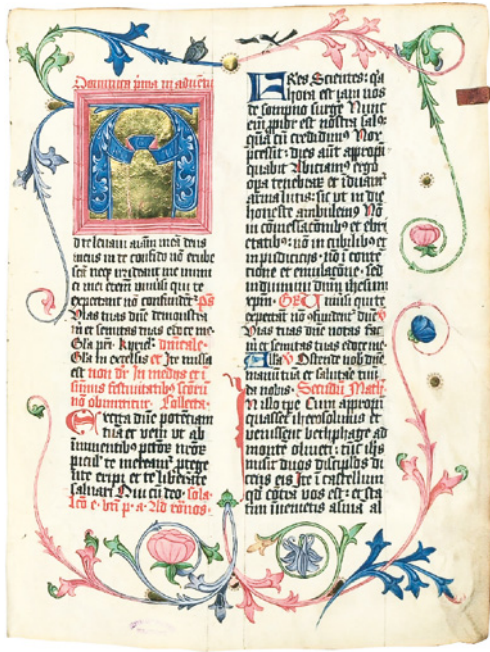 Dominica prima in advent
A
d te levavi animam meã deus
meus in te confido nõ erube
scã neqz irrideant me inimi
ci mei etem uniũsi qui te
expectant nõ confundent pš
Vias tuas dñe demonstra
m et semitas tuas edoce me
Glã pri. Kyriel. dñicale
Glã in excelsis et Ite missa
est non dr̃ In medijs et i
simus festivitatibʒ sctoru
nõ obmittitur. Collecta.
Excita dñe potenciam
tuã et veni ut ab
imminentibʒ pctõꝝ nr̃oꝝ
piculꝭ te mereamꝰ ptege
nte eripi et te liberãte
salvari Qui cũ deo. sola
lcõ e. bti p. a. Ad romos.
FRes. Scientes: qꝛ
hora est jam nos
de sompno surge Nunc
eñ ppiõr est nostra salꝰ
quã cũ credidimꝰ Nox
pcessit: dies aũt appropi
quabit Abiciamꝰ ergo
opa tenebraꝝ et iduamꝰ
arma lucis: sic ut in die
honeste ambulemꝰ Nõ
in comessacõnibꝰ et ebri
etatibꝰ: nõ in cubilibꝰ et
inpudicicijs: nõ i conte
tione et emulacõne. sed
induimini dñm ihesum
xpm. GRU̅ unisi qui te
expectãt nõ ꝯfundent dñe V
Vias tuas dñe notas fac
m et semitas tuas edoce me
Alla V Ostende nob dñe
mam tuã et salutãe tuũ
da nobis. Secundũ Math
In illo tpe Cum appropi
quasset ihesosolimis et
venissent bethphage ad
monte oliveti: tũc ihs
misit duos discipulos di
cens eis Ite i castellum
qd cõtra vos est: et sta
tim invenietis asina al